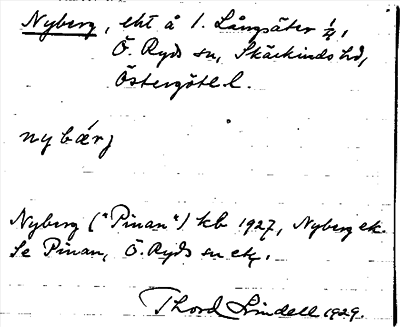 Nyberg, eht å l. Långsäter 1/4,
Ö. Ryds sn, Skärkinds hd,
Östergötl. l.
nybǽrj
Nyberg ("Pinan") kb 1927, Nyberg ek.
Se Pinan, Ö. Ryds sn etc.
Thord Lindell 1929.